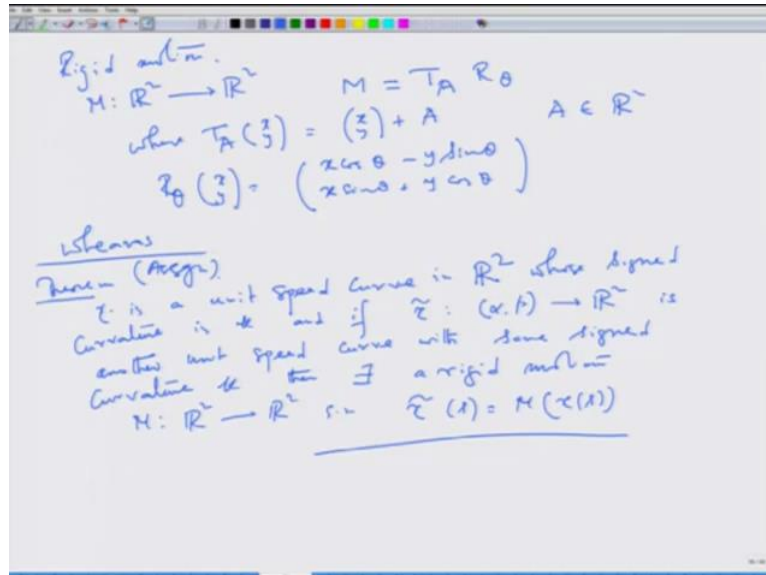 Rigid motion.
M: ℝ² → ℝ² M = T_A R_θ
where T_A (x y) = (x y) + A A ∈ ℝ²
R_θ (x y) = (x cos θ - y sin θ x sin θ + y cos θ)
Theorem (Assgn)
γ is a unit speed curve in ℝ² whose signed
curvature is k and if γ̃ : (α, β) → ℝ² is
another unit speed curve with same signed
curvature k then ∃ a rigid motion
M: ℝ² → ℝ² s.t. γ̃(s) = M(γ(s))